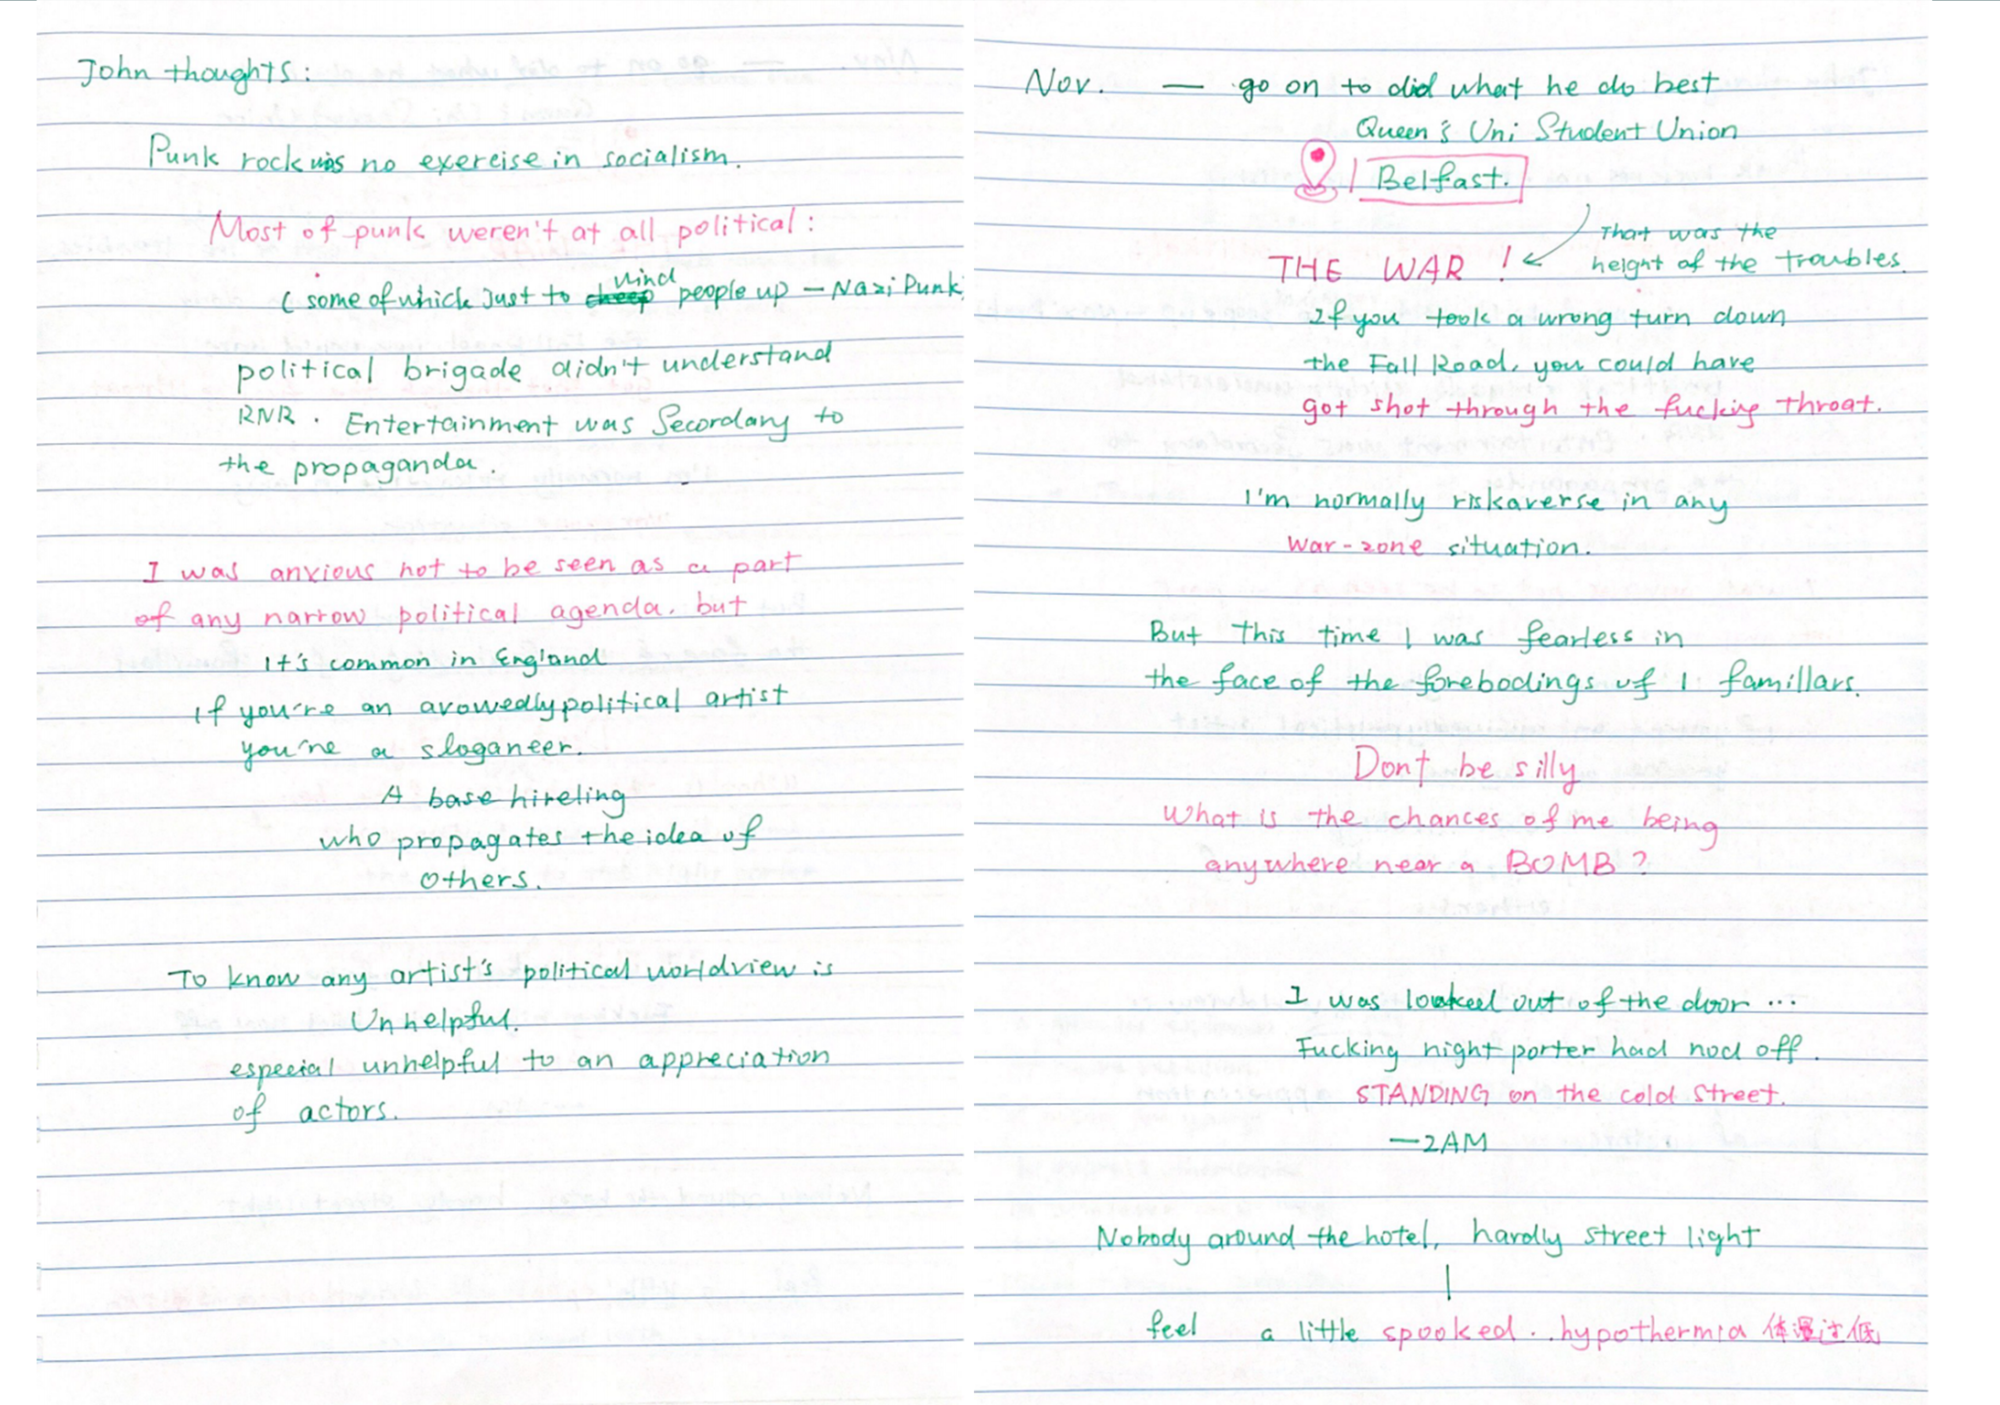 John thoughts:
Punk rock was no exercise in socialism.
Most of punk weren't at all political:
( some of which just to wind people up — Nazi Punk.
political brigade didn't understand
RNR. Entertainment was Secordary to
the propaganda.
I was anxious not to be seen as a part
of any narrow political agenda. but
It's common in England
If you're an avowedly political artist
you're a sloganeer.
A base hireling
who propagates the idea of
others.
To know any artist's political worldview is
Unhelpful.
especial unhelpful to an appreciation
of actors.
Nov. — go on to did what he do best
Queen's Uni Student Union
Belfast.
That was the
height of the troubles.
THE WAR !
If you took a wrong turn down
the Fall Road, you could have
got shot through the fucking throat.
I'm normally risk averse in any
war-zone situation.
But this time I was fearless in
the face of the forebodings of I famillars.
Dont be silly
What is the chances of me being
anywhere near a BOMB?
I was looked out of the door ...
Fucking night porter had nod off.
STANDING on the cold street.
—2AM
Nobody around the hotel, hardly street light
feel a little spooked. .. hypothermia 体温过低